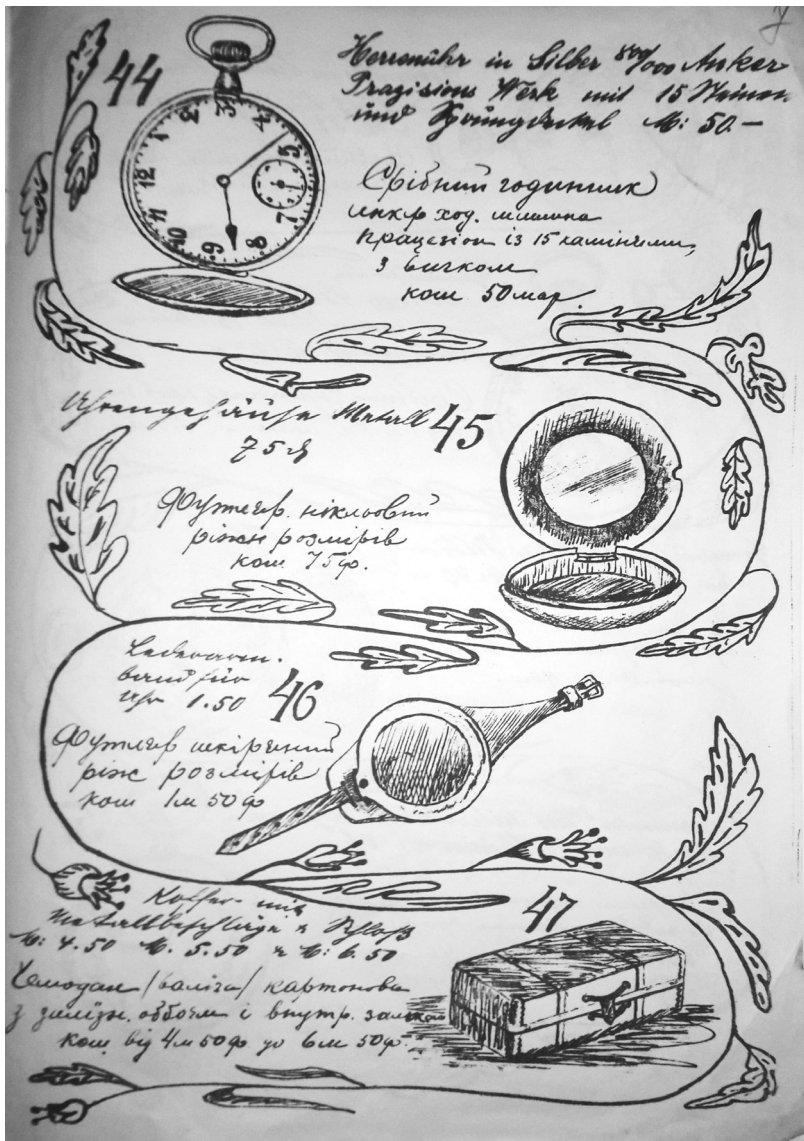 7
44
Herrenuhr in Silber 800/000 Anker
Präzisions Werk mit 15 Steinen
und Sprungdeckel M: 50.—
Срібний годинник
анкр ход.
працезіон із 15 камінчами,
з вічком
кош 50 мар.
Uhrengehäuse Metall 45
75 ₰
Футлєр. нікльовий
ріжн розмірів
кош 75ф.
Lederarm-
band für
Uhr 1.50 46
Футлєр шкіряний
ріж розмірів
кош 1м 50ф
Koffer mit
Metallbeschläge u Schloß 47
M: 4.50 M. 5.50 u M: 6.50
Чемодан /валіза/ картонова
з залізн. оббоєм і внутр. замком
кош від 4м 50ф до 6м 50ф.
3 4 5 7 8 9 10 11 12 2